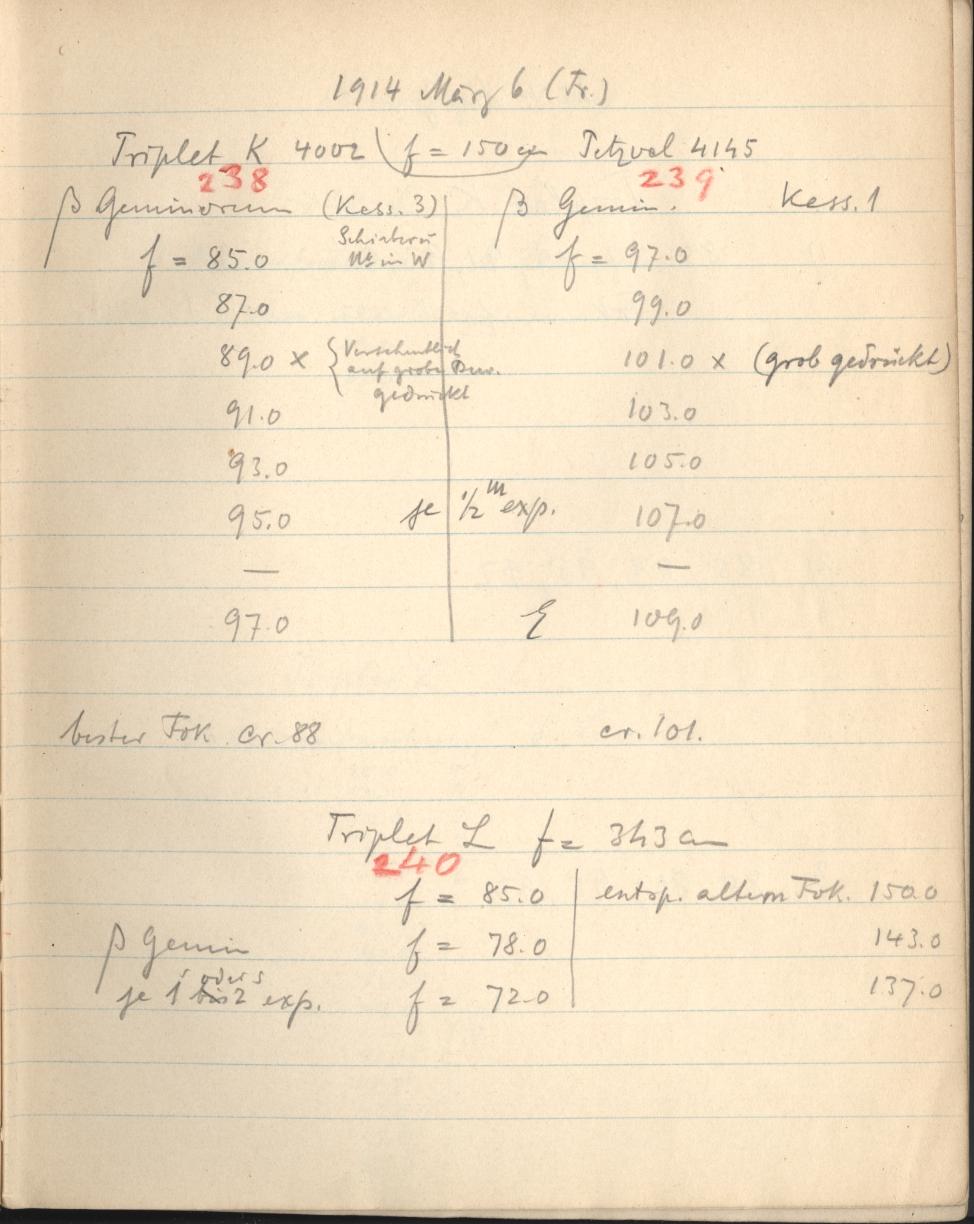 1914 März 6 (Fr.)
Triplet K 4002 f = 150 cm Petzval 4145
238 239
β Geminorum (Kass. 3) β Gemin. Kass. 1
Schieber in W
f = 85.0 f = 97.0
87.0 99.0
89.0 x {Versehentlich 101.0 x (grob gedrückt)
auf grobe Bew.
gedrückt
91.0 103.0
93.0 105.0
95.0 je 1/2 m exp. 107.0
— —
97.0 109.0
bester Fok. cr. 88 cr. 101.
Triplet L f = 343 cm
240
f = 85.0 entsp. altem Fok. 150.0
β Gemin f = 78.0 143.0
oder s
je 1 bis 2 exp. f = 72.0 137.0